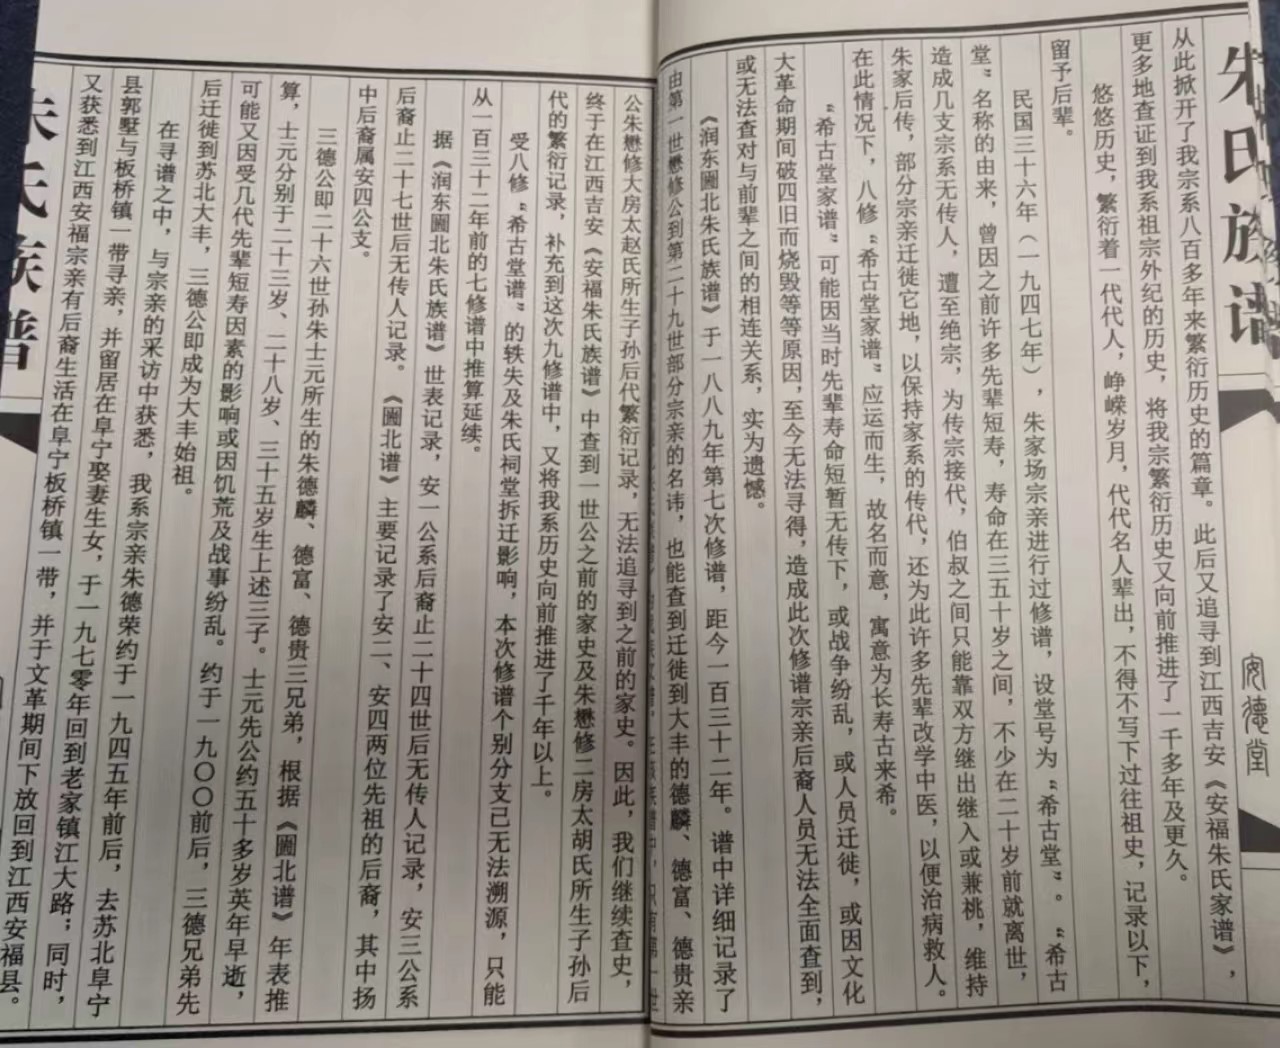 朱氏族谱
安德堂
从此掀开了我宗系八百多年来繁衍历史的篇章。此后又追寻到江西吉安《安福朱氏家谱》，
更多地查证到我系祖宗外纪的历史，将我宗繁衍历史又向前推进了一千多年及更久。
悠悠历史，繁衍着一代代人，峥嵘岁月，代代名人辈出，不得不写下过往祖史，记录以下，
留予后辈。
民国三十六年（一九四七年），朱家场宗亲进行过修谱，设堂号为“希古堂”。“希古
堂”名称的由来，曾因之前许多先辈短寿，寿命在三五十岁之间，不少在二十岁前就离世，
造成几支宗系无传人，遭至绝宗，为传宗接代，伯叔之间只能靠双方继出继入或兼桃，维持
朱家后传，部分宗亲迁徙它地，以保持家系的传代，还为此许多先辈改学中医，以便治病救人。
在此情况下，八修“希古堂家谱”应运而生，故名而意，寓意为长寿古来希。
“希古堂家谱”可能因当时先辈寿命短暂无传下，或战争纷乱，或人员迁徙，或因文化
大革命期间破四旧而烧毁等等原因，至今无法寻得，造成此次修谱宗亲后裔人员无法全面查到，
或无法查对与前辈之间的相连关系，实为遗憾。
《润东圌北朱氏族谱》于一八八九年第七次修谱，距今一百三十二年。谱中详细记录了
由第一世懋修公到第二十九世部分宗亲的名讳，也能查到迁徙到大丰的德麟、德富、德贵亲
公朱懋修大房太赵氏所生子孙后代繁衍记录，无法追寻到之前的家史。因此，我们继续查史，
终于在江西吉安《安福朱氏族谱》中查到一世公之前的家史及朱懋修二房太胡氏所生子孙后
代的繁衍记录，补充到这次九修谱中，又将我系历史向前推进了千年以上。
受八修“希古堂谱”的轶失及朱氏祠堂拆迁影响，本次修谱个别分支已无法溯源，只能
从一百三十二年前的七修谱中推算延续。
据《润东圌北朱氏族谱》世表记录，安一公系后裔止二十四世后无传人记录，安三公系
后裔止二十七世后无传人记录。《圌北谱》主要记录了安二、安四两位先祖的后裔，其中扬
中后裔属安四公支。
三德公即二十六世孙朱士元所生的朱德麟、德富、德贵三兄弟，根据《圌北谱》年表推
算，士元分别于二十三岁、二十八岁、三十五岁生上述三子。士元先公约五十多岁英年早逝，
可能又因受几代先辈短寿因素的影响或因饥荒及战事纷乱。约于一九〇〇前后，三德兄弟先
后迁徙到苏北大丰，三德公即成为大丰始祖。
在寻谱之中，与宗亲的采访中获悉，我系宗亲朱德荣约于一九四五年前后，去苏北阜宁
县郭墅与板桥镇一带寻亲，并留居在阜宁娶妻生女，于一九七零年回到老家镇江大路；同时，
又获悉到江西安福宗亲有后裔生活在阜宁板桥镇一带，并于文革期间下放回到江西安福县。
朱氏族谱